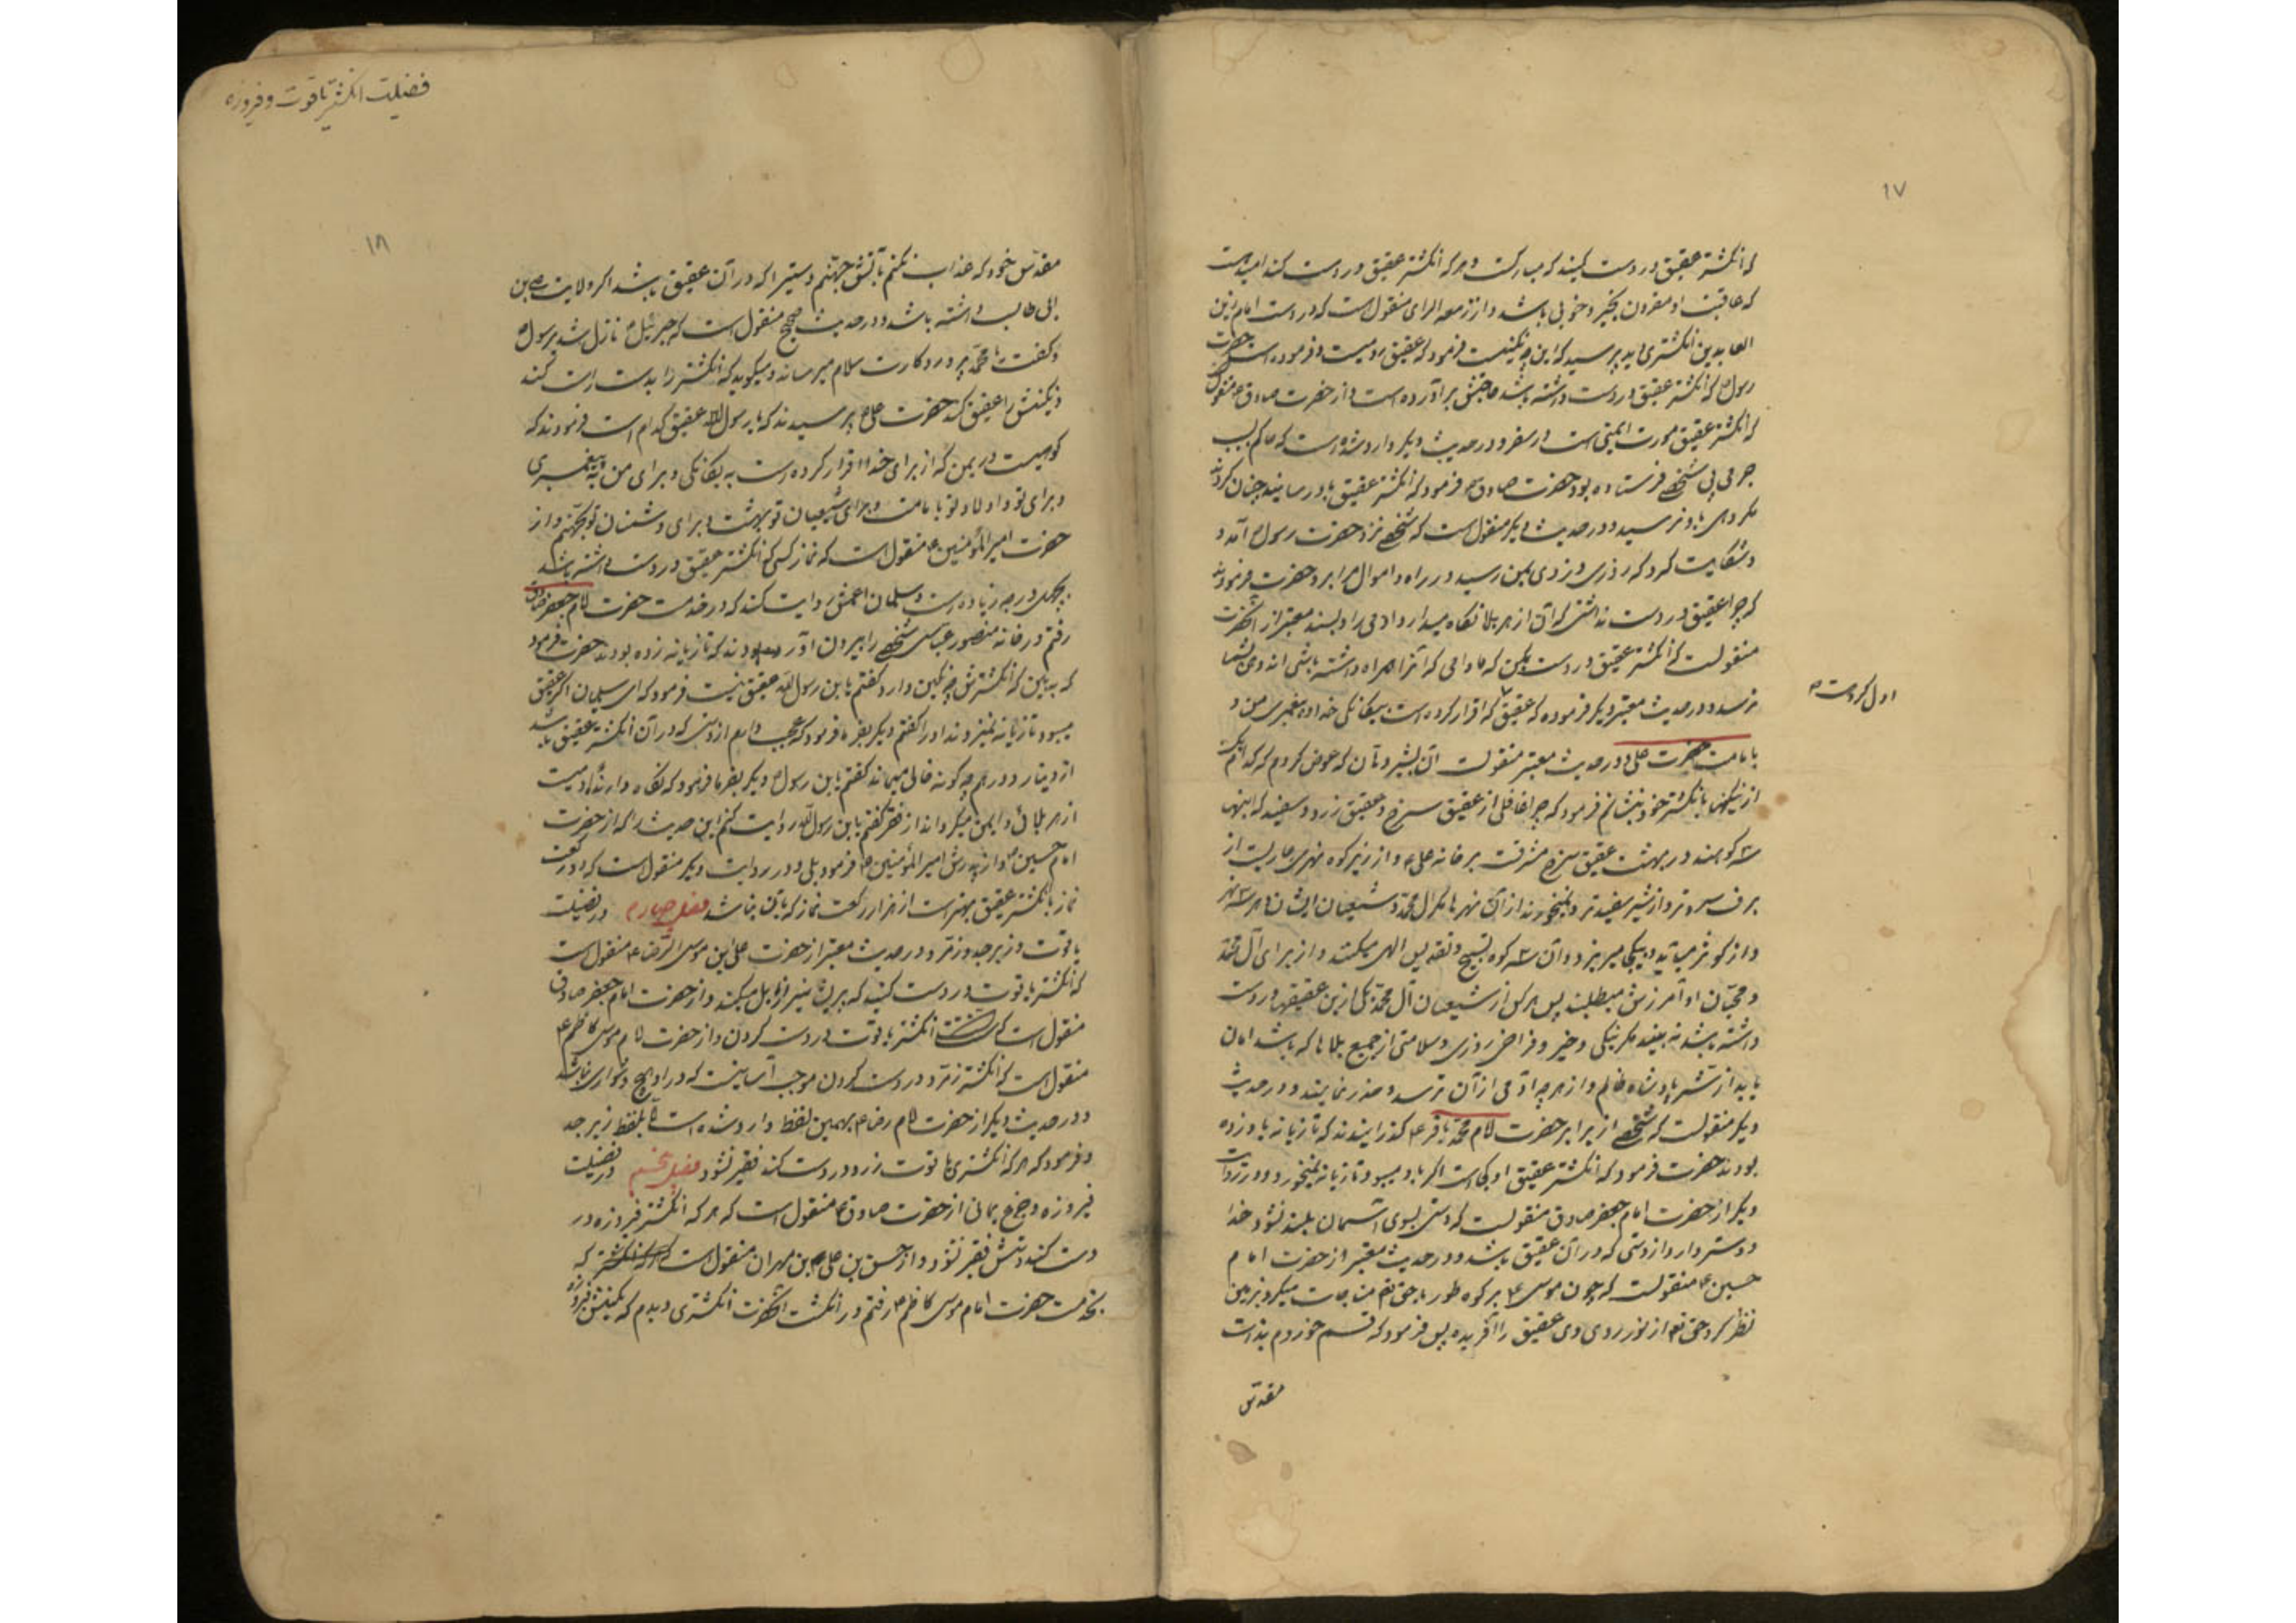 ۱۷
که انگشتر عقیق در دست کنید که مبارکست و هر که انگشتر عقیق در دست کند امید هست
که عاقبت او مقرون بخیر و خوبی باشد و از ربیعه الرای منقول است که در دست امام زین
العابدین انگشتری دید پرسید که این چه نگینست فرمود که عقیق رومیست و فرموده است حضرت
رسول که انگشتر عقیق در دست داشته باشد حاجتش برآورده است و از حضرت صادق ع منقول
که انگشتر عقیق مورث ایمنی است در سفر و در حدیث دیگر وارد شده است که حاکم بسبب
جرمی پی شخصی فرستاده بود حضرت صادق ع فرمود که انگشتر عقیق باو رسانید چنان کردند
مکروهی باو نرسید و در حدیث دیگر منقول است که شخصی نزد حضرت رسول آمد و
و شکایت کرد که روزی دزدی بمن رسید در راه و اموال مرا برد حضرت فرمودند
که چرا عقیق در دست نداشتی که آن از هر بلا نگاه میدارد آدمی را و بسند معتبر از آنحضرت
منقولست که انگشتر عقیق در دست بکن که مادامی که آنرا همراه داشته باشی اندوهی بشما
نرسد و در حدیث معتبر دیگر فرموده که عقیق که اقرار کرده است بیگانگی خدا و پیغمبری من و
اول کوهست
بامامت حضرت علی و در حدیث معتبر منقولست از بشیر دهان که عرض کردم که کدام یک
از نگینها بانگشتر خود بنشانم فرمود که چرا غافلی از عقیق سرخ و عقیق زرد و سفید که اینها
۳ کوهند در بهشت عقیق سرخ مشرفست بر خانه علی ع و از زیر کوه نهری جاریست از
برف سردتر و از شیر سفیدتر و نمیخورند از آن نهر مگر آل محمد و شیعیان ایشان و هر ۳ نهر
و از کوثر میآید و بیکجا میریزد و آن ۳ کوه تسبیح و تقدیس الهی میکنند و از برای آل محمد
و محبان او آمرزش میطلبند پس هر کس از شیعیان آل محمد یکی ازین عقیقها در دست
داشته باشد نه بیند مگر نیکی و خیر و فراخی روزی و سلامتی از جمیع بلاها که باشد امان
یابد از شر پادشاه ظالم و از هر چه آدمی از آن ترسد و حذر نمایند و در حدیث
دیگر منقولست که شخصی از برابر حضرت امام محمد باقر ع گذرانیدند که تازیانه باو زده
بودند حضرت فرمود که انگشتر عقیق او کجاست اگر باو میبود تازیانه نمیخورد و در روایت
دیگر از حضرت امام جعفر صادق منقولست که دستی بسوی آسمان بلند نشود خدا
دوستر دارد از دستی که در آن عقیق باشد و در حدیث معتبر از حضرت امام
حسین ع منقولست که چون موسی ع بر کوه طور با حق تع مناجات میکرد بزمین
نظر کرد حق تع از نور روی وی عقیق را آفریده پس فرمود که قسم خوردم بذات
مقدس
فضیلت انگشتر یاقوت و فیروزه
۱۸
مقدس خود که عذاب نکنم بآتش جهنم دستیرا که در آن عقیق باشد اگر ولایت علی بن
ابی طالب داشته باشد و در حدیث صحیح منقول است که جبرئیل ع نازل شد برسول
و گفت یا محمد پروردگارت سلام میرساند و میگوید که انگشتر را بدست راست کند
و نگینش را عقیق کند حضرت علی ع پرسیدند که یا رسول الله عقیق کدام است فرمودند که
کوهیست در یمن که از برای خدا اقرار کرده است به یگانگی و برای من به پیغمبری
و برای تو و اولاد تو بامامت و برای شیعیان تو ببهشت و برای دشمنان تو بجهنم و از
حضرت امیرالمؤمنین ع منقول است که نماز کسی که انگشتر عقیق در دست داشته باشد
بچهل درجه زیاده است و سلیمان اعمش روایت کند که در خدمت حضرت امام جعفر صادق
رفتم در خانه منصور عباسی شخصی را بیرون آوردند که تازیانه زده بودند حضرت فرمود
که ببین که انگشترش چه نگین دارد گفتم یا بن رسول الله عقیق نیست فرمود که ای سلیمان اگر عقیق
میبود تازیانه نمیزدند او را گفتم دیگر بفرما فرمود که عجب دارم از دستی که در آن انگشتر عقیق باشد
از دینار و درهم چه گونه خالی میماند گفتم یا بن رسول دیگر بفرما فرمود که نگاه دارنده آدمیست
از هر بلائی و ایمن میگرداند از فقر گفتم یا بن رسول الله روایت کنم این حدیث را که از حضرت
امام حسین ع و از پدرش امیرالمؤمنین ع فرمود بلی و در روایت دیگر منقول است که دو رکعت
نماز بانگشتر عقیق بهتر است از هزار رکعت نماز که با آن نباشد فصل چهارم در فضیلت
یاقوت و زبرجد و زمرد در حدیث معتبر از حضرت علی بن موسی الرضا ع منقول است
که انگشتر یاقوت در دست کنید که پریشانیرا زایل میکند و از حضرت امام جعفر صادق
منقول است که انگشتر یاقوت در دست کردن و از حضرت امام موسی کاظم ع
منقول است که انگشتر زمرد در دست کردن موجب آسانیست که در او هیچ دشواری نباشد
و در حدیث دیگر از حضرت امام رضا ع بهمین لفظ وارد شده است تا بلفظ زبرجد
و فرمود که هر که انگشتری یاقوت زرد در دست کند فقیر نشود فصل پنجم در فضیلت
فیروزه و جزع یمانی از حضرت صادق ع منقول است که هر که انگشتر فیروزه در
دست کند دستش فقیر نشود و از حسن بن علی بن مهران منقول است که
بخدمت حضرت امام موسی کاظم ع رفتم در انگشت آنحضرت انگشتری دیدم که نگینش فیروزه